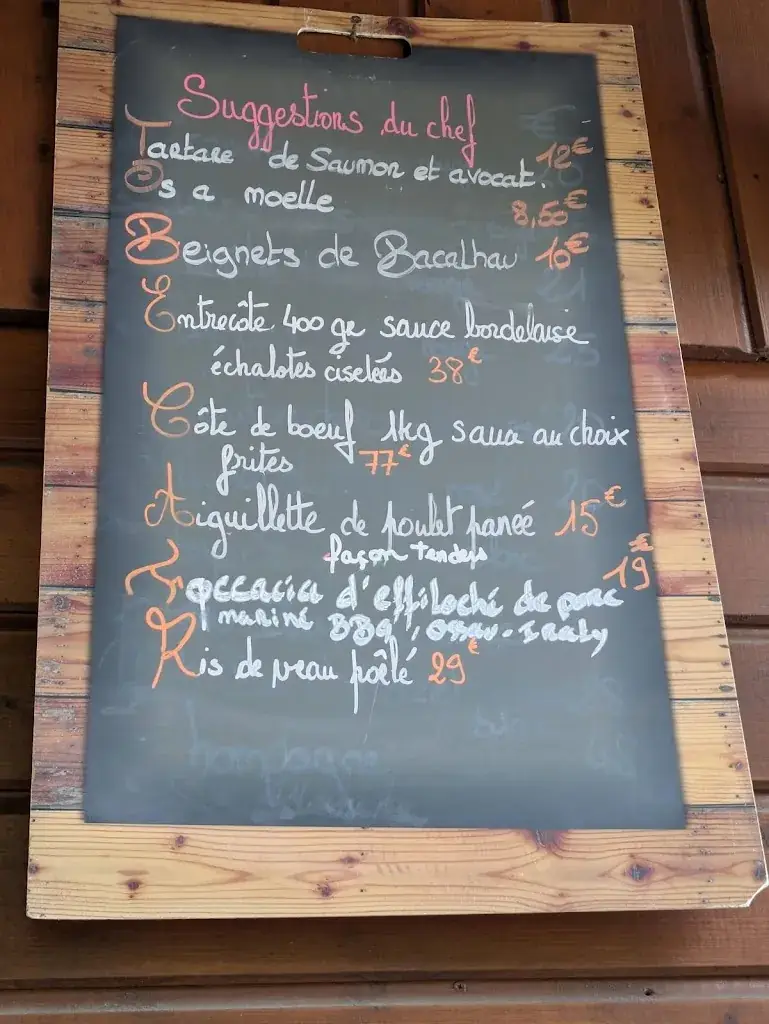 Suggestions du chef
Tartare de Saumon et avocat. 12€
Os a moelle 8,50€
Beignets de Bacalhau 10€
Entrecôte 400 gr sauce bordelaise
échalotes ciselées 38€
Côte de boeuf 1kg sauce au choix
frites 77€
Aiguillette de poulet panée 15€
façon tenders
Foccacia d'effiloché de porc 19€
mariné BBQ, Ossau-Iraty
Ris de veau poêlé 29€